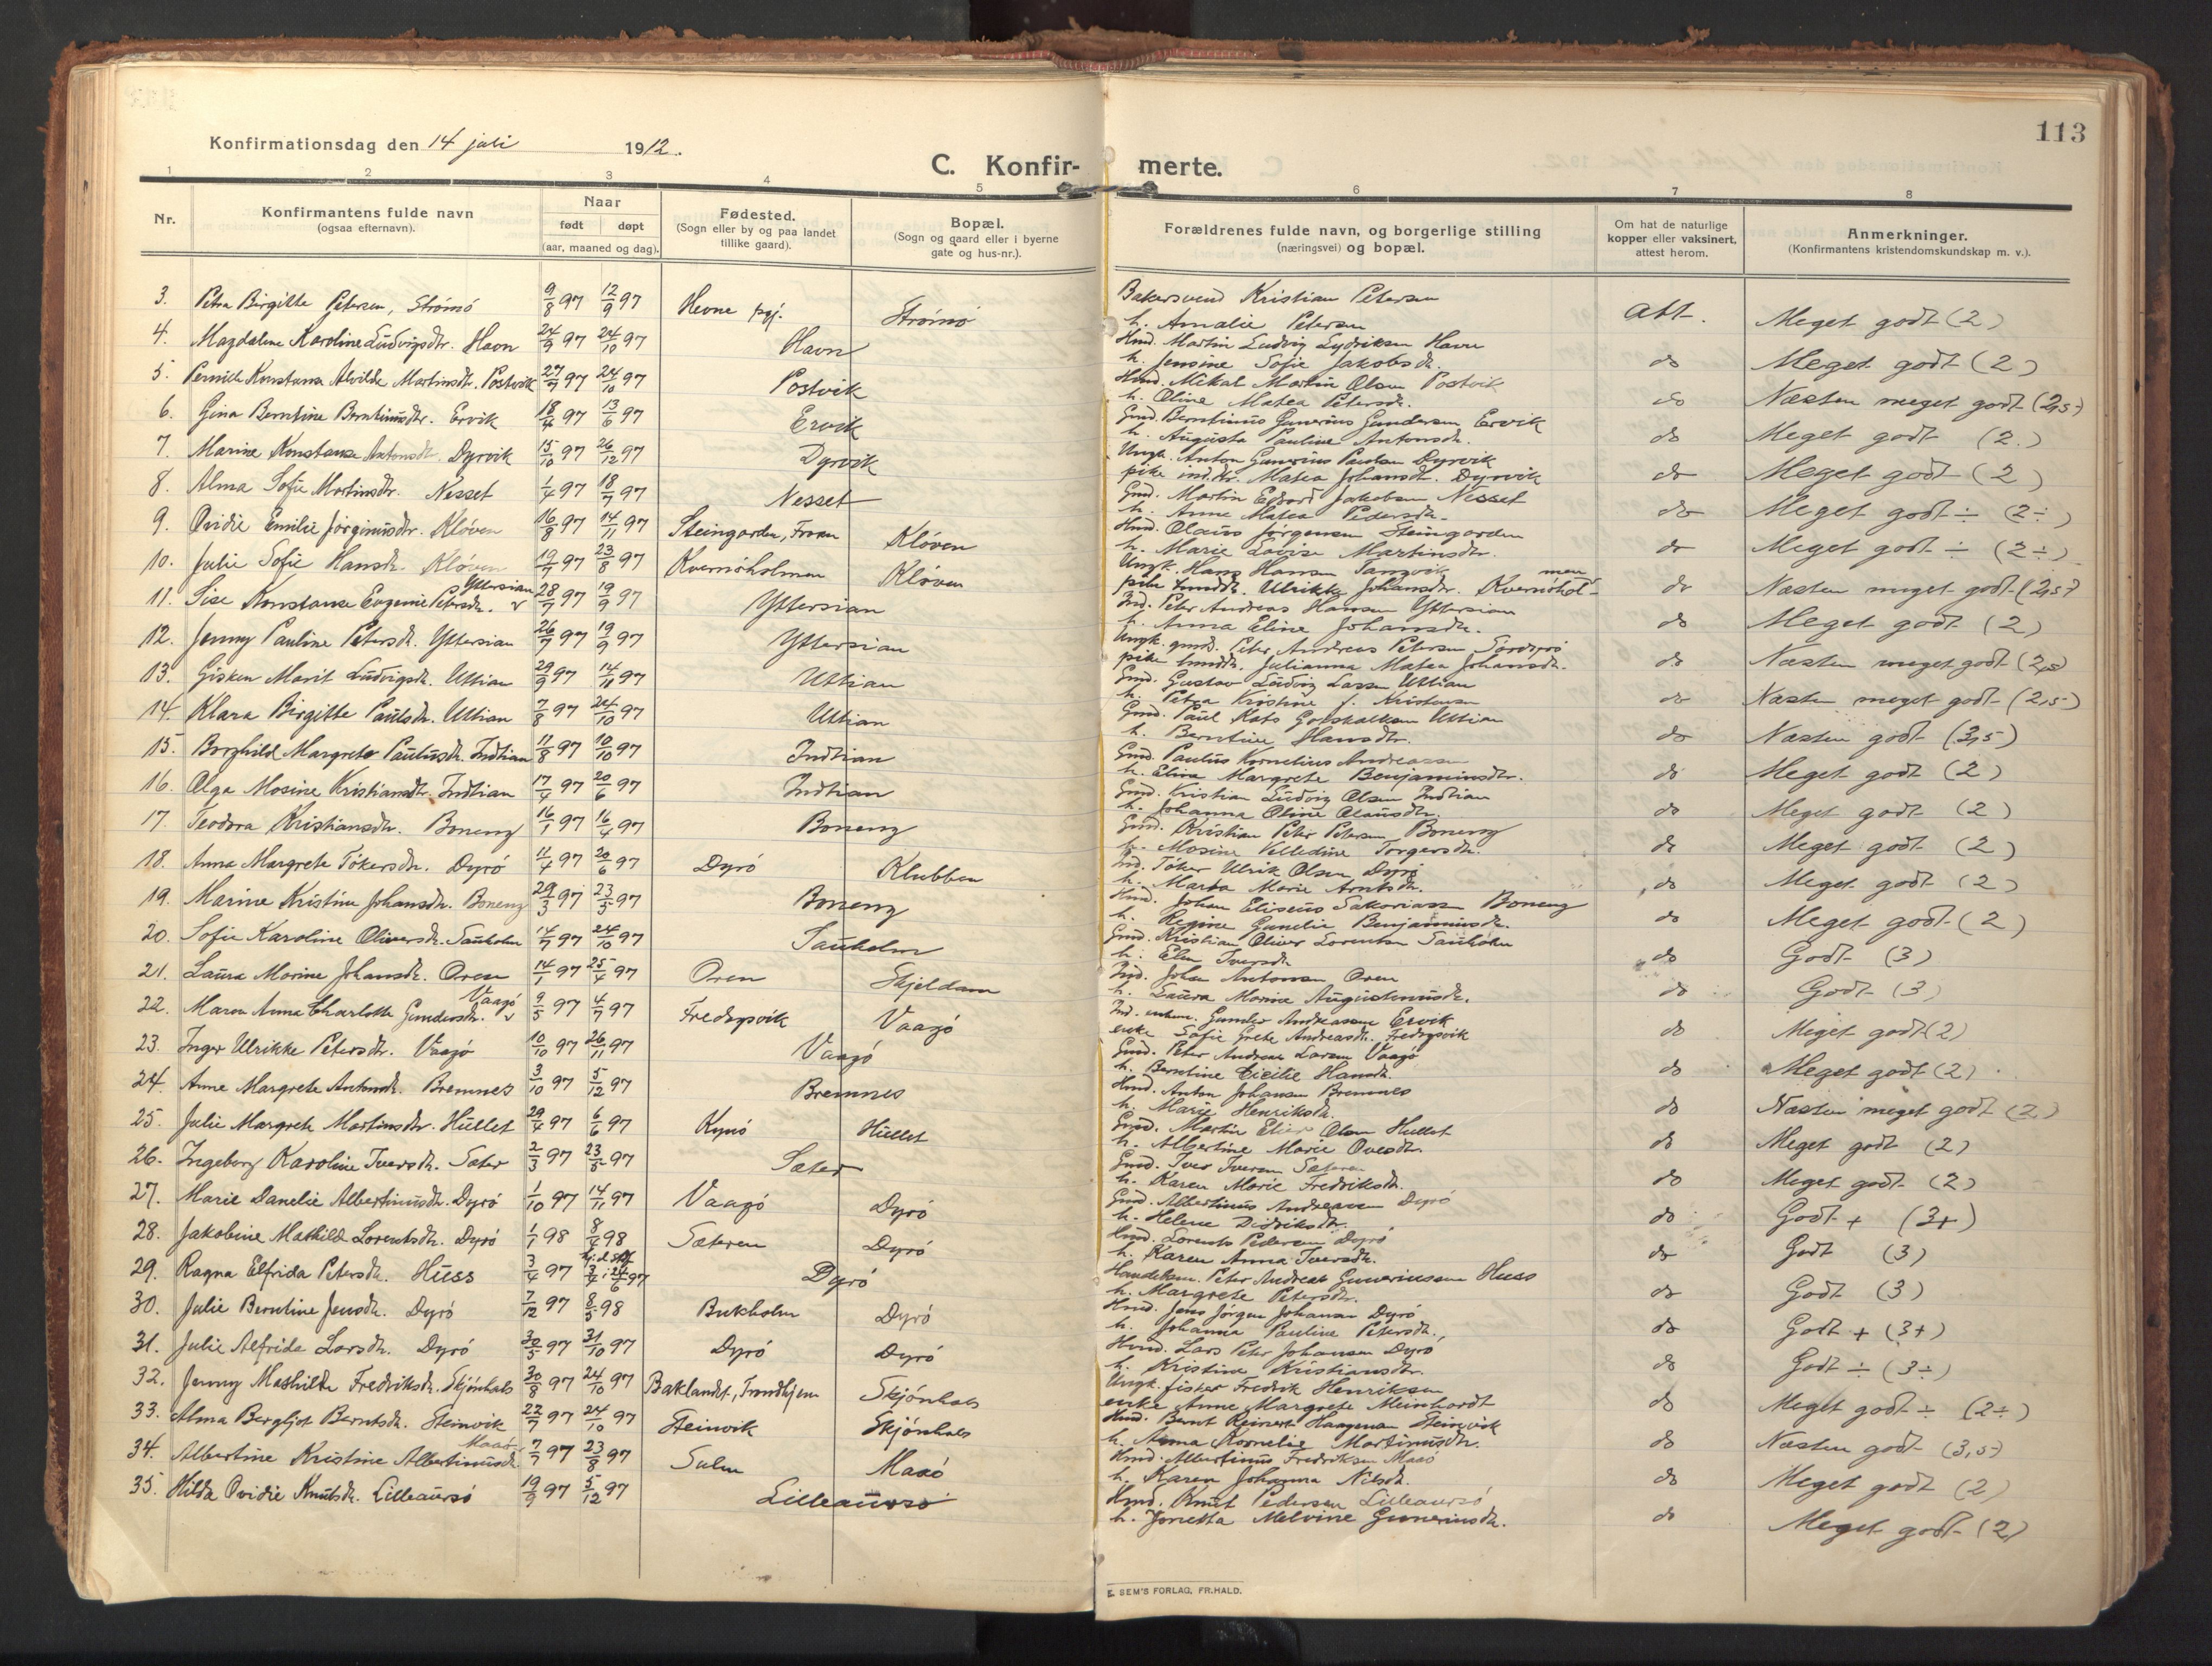 113
Konfirmationsdag den 14 juli 1912.
C. Konfir- merte.
1 2 3 4 5 6 7 8
Nr. Konfirmantens fulde navn (ogsaa efternavn). Naar født døpt (aar, maaned og dag). Fødested. (Sogn eller by og paa landet tillike gaard). Bopæl. (Sogn og gaard eller i byerne gate og hus-nr.). Forældrenes fulde navn, og borgerlige stilling (næringsvei) og bopæl. Om hat de naturlige kopper eller vaksinert, attest herom. Anmerkninger. (Konfirmantens kristendomskundskap m. v.).
3. Petra Birgitte Petersen, Strömö 9/8 97 12/9 97 Hevne pgj. Strömö Bakersvend Kristian Petersen att. Meget godt (2)
h. Amalie Petersen
4. Magdalene Karoline Ludvigsdtr. Havn 24/9 97 24/10 97 Havn Hmd. Martin Ludvig Lydriksen Havn do Meget godt (2)
h. Jensine Sofie Jakobsdtr.
5. Pernille Konstanse Alvilde Martinsdtr. Postvik 27/7 97 24/10 97 Postvik Hmd. Mikal Martin Olsen Postvik do Næsten meget godt (2,5)
h. Oline Matea Petersdtr.
6. Gina Berntine Berntinusdtr. Ervik 18/4 97 13/6 97 Ervik Gmd. Berntinus Gunerius Gundersen Ervik do Meget godt (2.)
h. Augusta Pauline Antonsdtr.
7. Marine Konstanse Antonsdtr. Dyrvik 15/10 97 26/12 97 Dyrvik Ungk. Anton Gunerius Paulsen Dyrvik do Meget godt (2)
pike ind.dtr. Matea Johansdtr. Dyrvik
8. Alma Sofie Martinsdtr. Nesset 1/4 97 18/7 97 Nesset Gmd. Martin Edvard Jakobsen Nesset do Meget godt ÷ (2÷)
h. Anne Matea Pedersdtr.
9. Ovidie Emilie Jörginusdtr. Klöven 16/8 97 14/11 97 Steingarden, Froan Klöven Hmd. Olaus Jörgensen Steingarden do Meget godt ÷ (2÷)
h. Marie Lovise Martinsdtr.
10. Julie Sofie Hansdtr. Klöven 19/7 97 23/8 97 Kvernöholmen Klöven Ungk. Hans Hansen Sangvik do Næsten meget godt (2,5)
pike Inndtr. Ulrikke Johansdtr. Kvernöholmen
11. Sise Konstanse Eugenie Petersdtr. Yttersian 28/7 97 19/9 97 Yttersian Ind. Peter Andreas Hansen Yttersian do Meget godt (2)
h. Anna Eline Johansdtr.
12. Jenny Pauline Petersdtr. Yttersian 26/7 97 19/9 97 Yttersian Ungk. gmd. Peter Andreas Petersen Sördyrö do Næsten meget godt (2,5)
pike Inndtr. Julianna Matea Johansdtr.
13. Gisken Marit Ludvigsdtr. Uttian 29/9 97 14/11 97 Uttian Gmd. Gustav Ludvig Larsen Uttian do Næsten meget godt (2,5)
h. Petra Kristine J. Kristensen
14. Klara Birgitte Paulsdtr. Uttian 7/8 97 24/10 97 Uttian Gmd. Paul Kats Gotskalksen Uttian do Næsten godt (3,5)
h. Berntine Hansdtr.
15. Borghild Margrete Paulusdtr. Indtian 11/8 97 10/10 97 Indtian Gmd. Paulus Kornelius Andreassen do Meget godt (2)
h. Elina Margrete Benjaminsdtr.
16. Olga Mosine Kristiansdtr. Indtian 17/4 97 20/6 97 Indtian Gmd. Kristian Ludvig Olsen Indtian do Meget godt (2)
h. Johanna Oline Olausdtr.
17. Teodora Kristiansdtr. Boneng 16/1 97 16/4 97 Boneng Gmd. Kristian Peter Petersen Boneng do Meget godt (2)
h. Mosine Velledine Torgersdtr.
18. Anna Margrete Tökersdtr. Dyrö 11/4 97 20/6 97 Dyrö Klubben Ind. Töker Ulrik Olsen Dyrö do Meget godt (2)
h. Marta Marie Arntsdtr.
19. Marine Kristine Johansdtr. Boneng 29/3 97 23/5 97 Boneng Hmd. Johan Eliseus Sakariassen Boneng do Meget godt (2)
h. Regine Gunelie Benjaminsdtr.
20. Sofie Karoline Oliversdtr. Sauholm 14/7 97 24/10 97 Sauholm Gmd. Kristian Oliver Lorentsen Sauholm do Godt (3)
h. Elen Iversdtr.
21. Laura Morine Johansdtr. Oren 14/1 97 25/4 97 Oren Skjeldam Ind. Johan Antonsen Oren do Godt (3)
h. Laura Morine Augustinusdtr.
22. Maren Anna Charlotte Gundersdtr. Vaagö 9/5 97 4/7 97 Fredsysvik Vaagö Ind. enkem. Gunder Andreassen Ervik do Meget godt (2)
enke Sofie Grete Andreasdtr. Fredsysvik
23. Inger Ulrikke Petersdtr. Vaagö 10/10 97 26/11 97 Vaagö Gmd. Peter Andreas Larsen Vaagö do Meget godt (2)
h. Berntine Cicilie Hansdtr.
24. Anne Margrete Antonsdtr. Bremnes 3/10 97 5/12 97 Bremnes Hmd. Anton Johansen Bremnes do Næsten meget godt (2)
h. Marie Henriksdtr.
25. Julie Margrete Martinsdtr. Hullet 29/4 97 6/6 97 Kynö Hullet Gmd. Martin Elier Olsen Hullet do Meget godt (2)
h. Albertine Marie Ovesdtr.
26. Ingeborg Karoline Iversdtr. Sæter 2/3 97 23/5 97 Sæter Gmd. Iver Iversen Sæteren do Meget godt (2)
h. Karen Marie Fredriksdtr.
27. Marie Danelie Albertinusdtr. Dyrö 1/10 97 14/11 97 Vaagö Dyrö Gmd. Albertinus Andreassen Dyrö do Godt + (3+)
h. Helene Didriksdtr.
28. Jakobine Mathilde Lorentsdtr. Dyrö 1/1 98 8/4 98 Sæteren Dyrö Hmd. Lorents Pedersen Dyrö do Godt (3)
h. Karen Anna Iversdtr.
29. Ragna Elfrida Petersdtr. Huss 3/4 97 hj.d. 3/4, i 24/6 97 Dyrö Handelsm. Peter Andreas Gunerinssen Huss do Godt (3)
h. Margrete Petersdtr.
30. Julie Berntine Jensdtr. Dyrö 7/12 97 8/5 98 Bukholm Dyrö Hmd. Jens Jörgen Johansen Dyrö do Godt + (3+)
h. Johanna Pauline Petersdtr.
31. Julie Alfrida Larsdtr. Dyrö 30/5 97 31/10 97 Dyrö Dyrö Hmd. Lars Peter Johansen Dyrö do Godt ÷ (3÷)
h. Kristine Kristiansdtr.
32. Jenny Mathilde Fredriksdtr. Skjönhals 30/8 97 24/10 97 Baklandet, Trondhjem Skjönhals Ungk. fisker Fredrik Henriksen do Meget godt ÷ (2÷)
enke Anne Margrete Meinhardt
33. Alma Bergljot Berntsdtr. Steinvik 22/7 97 24/10 97 Steinvik Skjönhals Hmd. Bernt Reinert Haagensen Steinvik do Næsten godt (3,5)
h. Anna Kornelie Martinusdtr.
34. Albertine Kristine Albertinusdtr. Maaö 7/7 97 23/8 97 Sulen Maaö Hmd. Albertinus Fredriksen Maaö do Meget godt (2)
h. Karen Johanna Nilsdtr.
35. Hilda Ovidie Knutsdtr. Lilleaursö 19/9 97 5/12 97 Lilleaursö Hmd. Knut Pedersen Lilleaursö do Meget godt (2)
h. Jonetta Melvine Gunerinsdtr.
E. SEM'S FORLAG, FR.HALD.